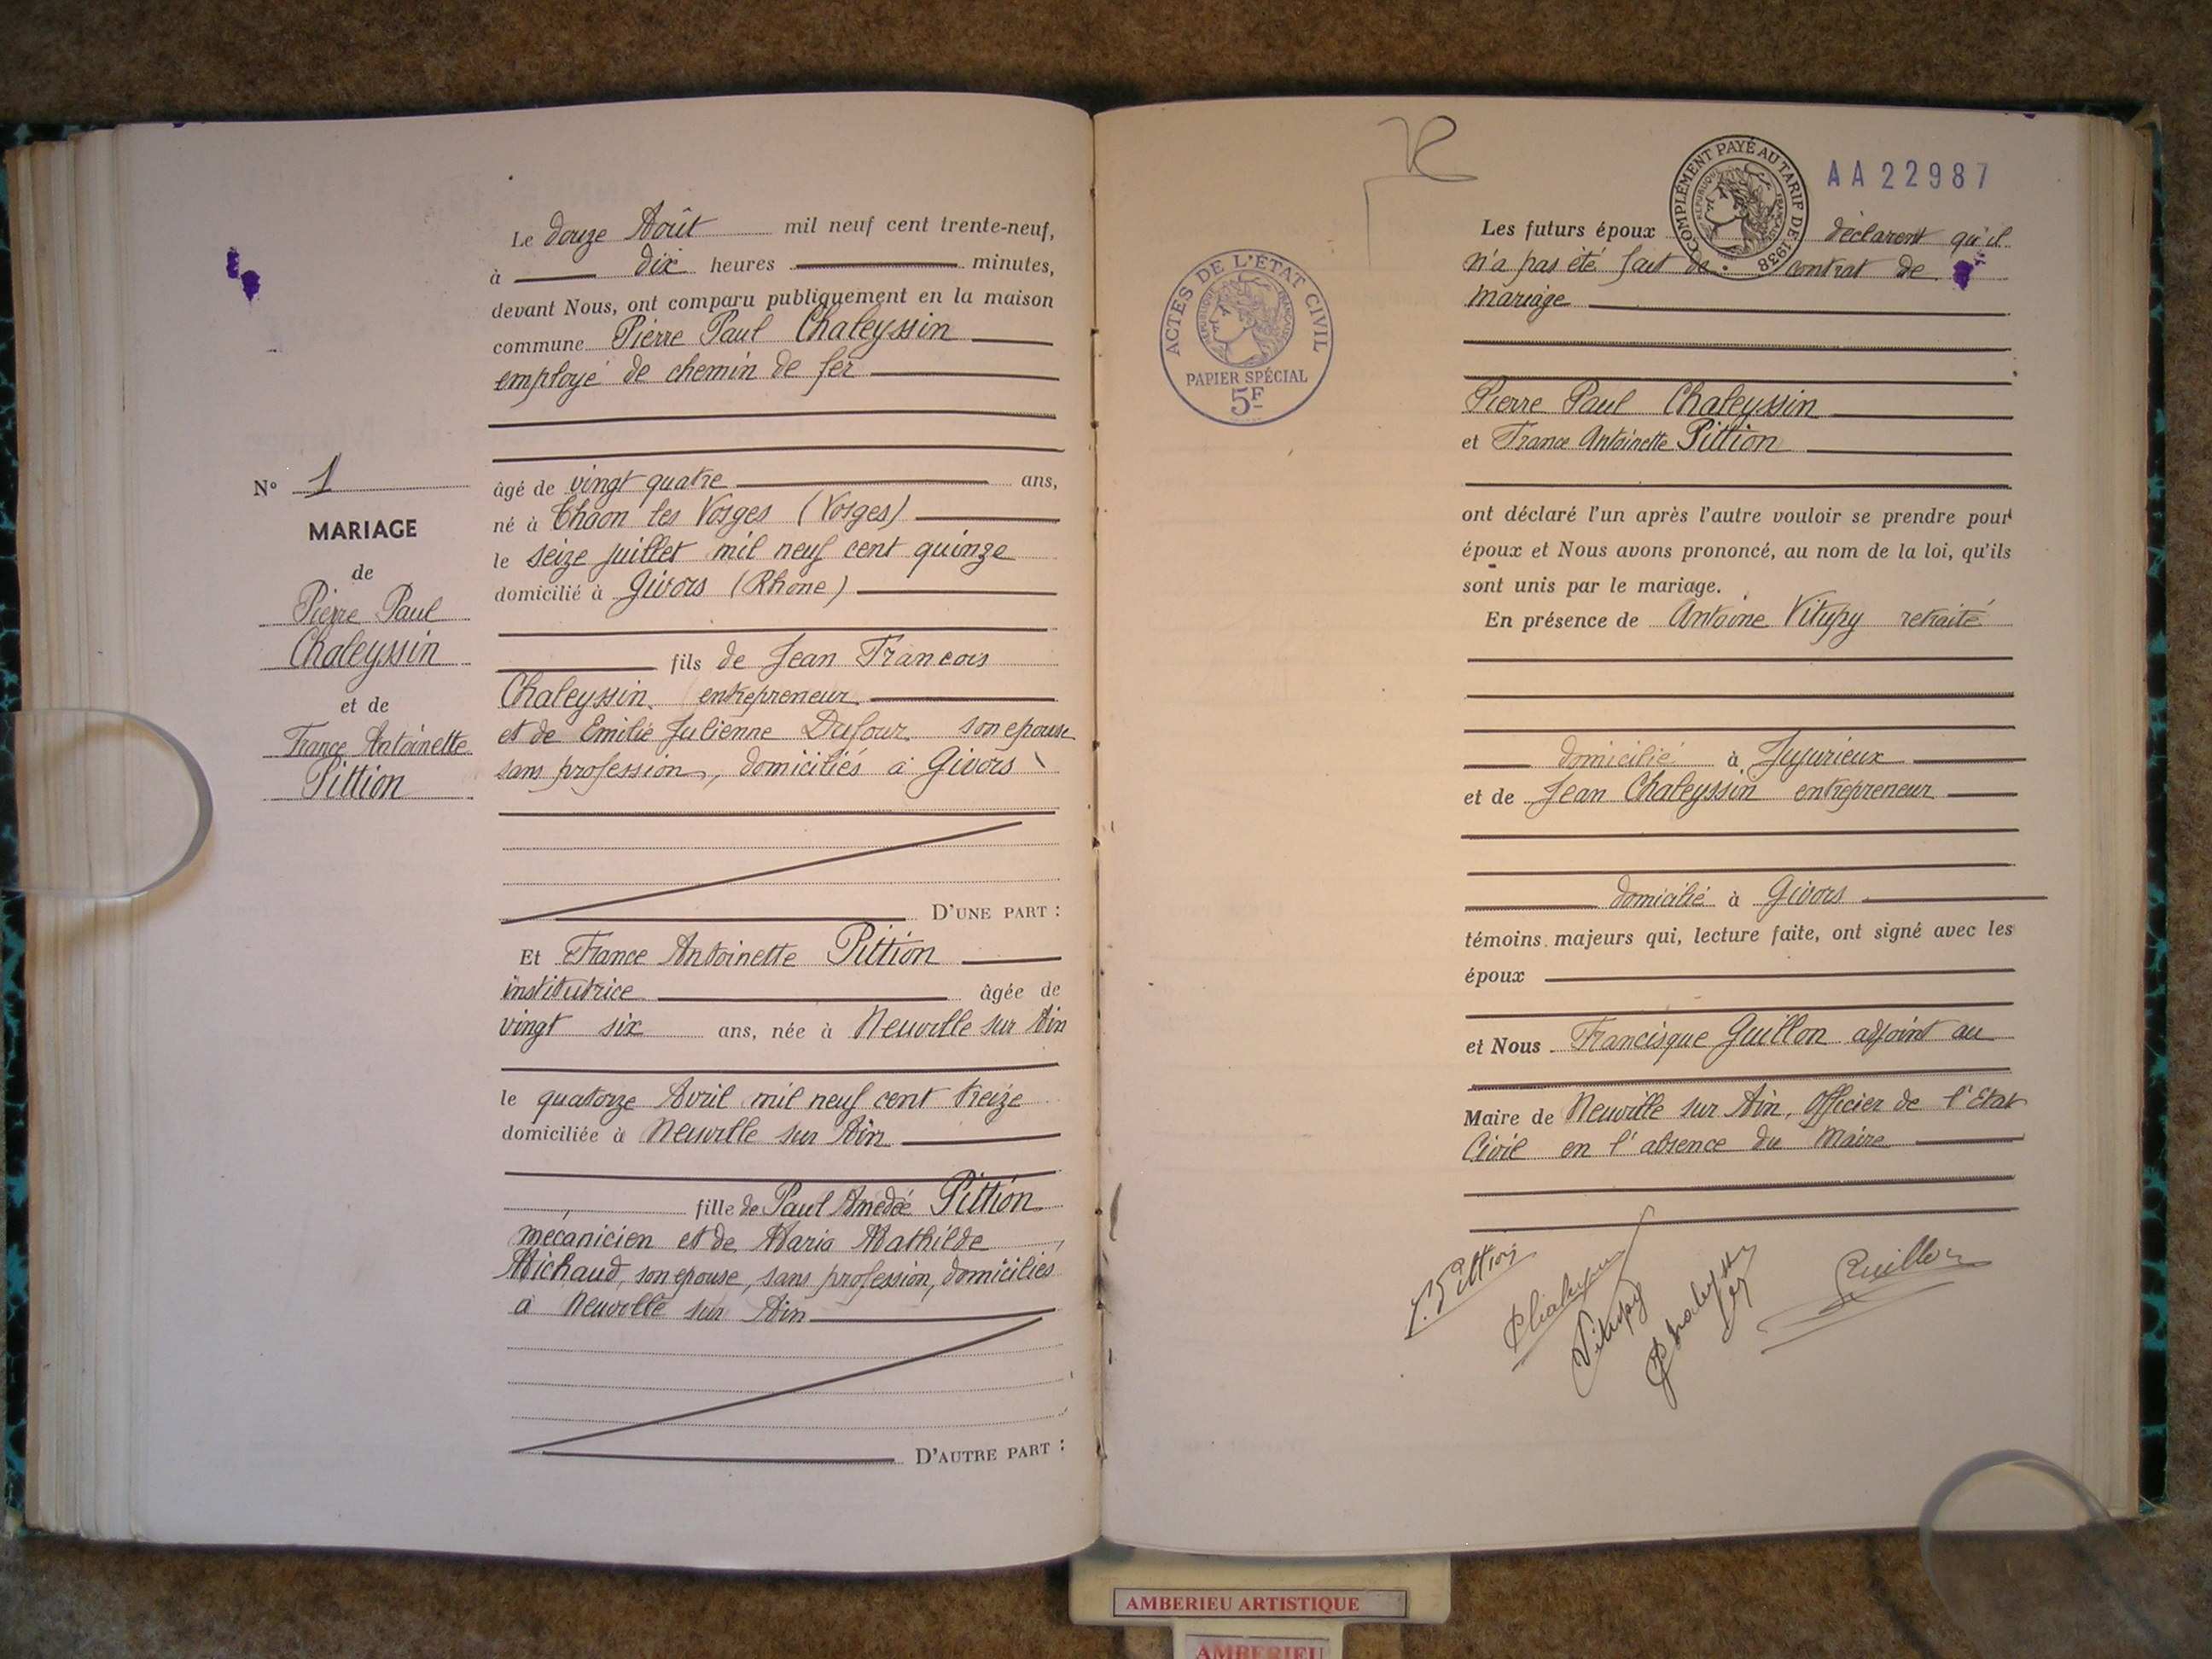 Le douze Août mil neuf cent trente-neuf,
à dix heures minutes,
devant Nous, ont comparu publiquement en la maison
commune Pierre Paul Chaleyssin
employé de chemin de fer
N° 1
MARIAGE
de
Pierre Paul
Chaleyssin
et de
France Antoinette
Pittion
âgé de vingt quatre ans,
né à Thaon les Vosges (Vosges)
le seize juillet mil neuf cent quinze
domicilié à Givors (Rhône)
fils de Jean François
Chaleyssin, entrepreneur
et de Emilie Julienne Dufour son epouse
sans profession, domiciliés à Givors
D'UNE PART :
Et France Antoinette Pittion
institutrice âgée de
vingt six ans, née à Neuville sur Ain
le quatorze Avril mil neuf cent treize
domiciliée à Neuville sur Ain
fille de Paul Amedée Pittion
mécanicien et de Maria Mathilde
Michaud, son epouse, sans profession, domiciliés
à Neuville sur Ain
D'AUTRE PART :
COMPLÉMENT PAYÉ AU TARIF DE 1938
RÉPUBLIQUE FRANÇAISE
AA22987
ACTES DE L'ÉTAT CIVIL
RÉPUBLIQUE FRANÇAISE
PAPIER SPÉCIAL
5F
Les futurs époux déclarent qu'il
n'a pas été fait de contrat de
mariage
Pierre Paul Chaleyssin
et France Antoinette Pittion
ont déclaré l'un après l'autre vouloir se prendre pour
époux et Nous avons prononcé, au nom de la loi, qu'ils
sont unis par le mariage.
En présence de Antoine Vitupy retraité
domicilié à Jujurieux
et de Jean Chaleyssin entrepreneur
domicilié à Givors
témoins majeurs qui, lecture faite, ont signé avec les
époux
et Nous Francisque Guillon adjoint au
Maire de Neuville sur Ain, Officier de l'Etat
Civil en l'absence du Maire
Pittion
Chaleyssin
Vitupy
Guillon
AMBERIEU ARTISTIQUE
AMBERIEU